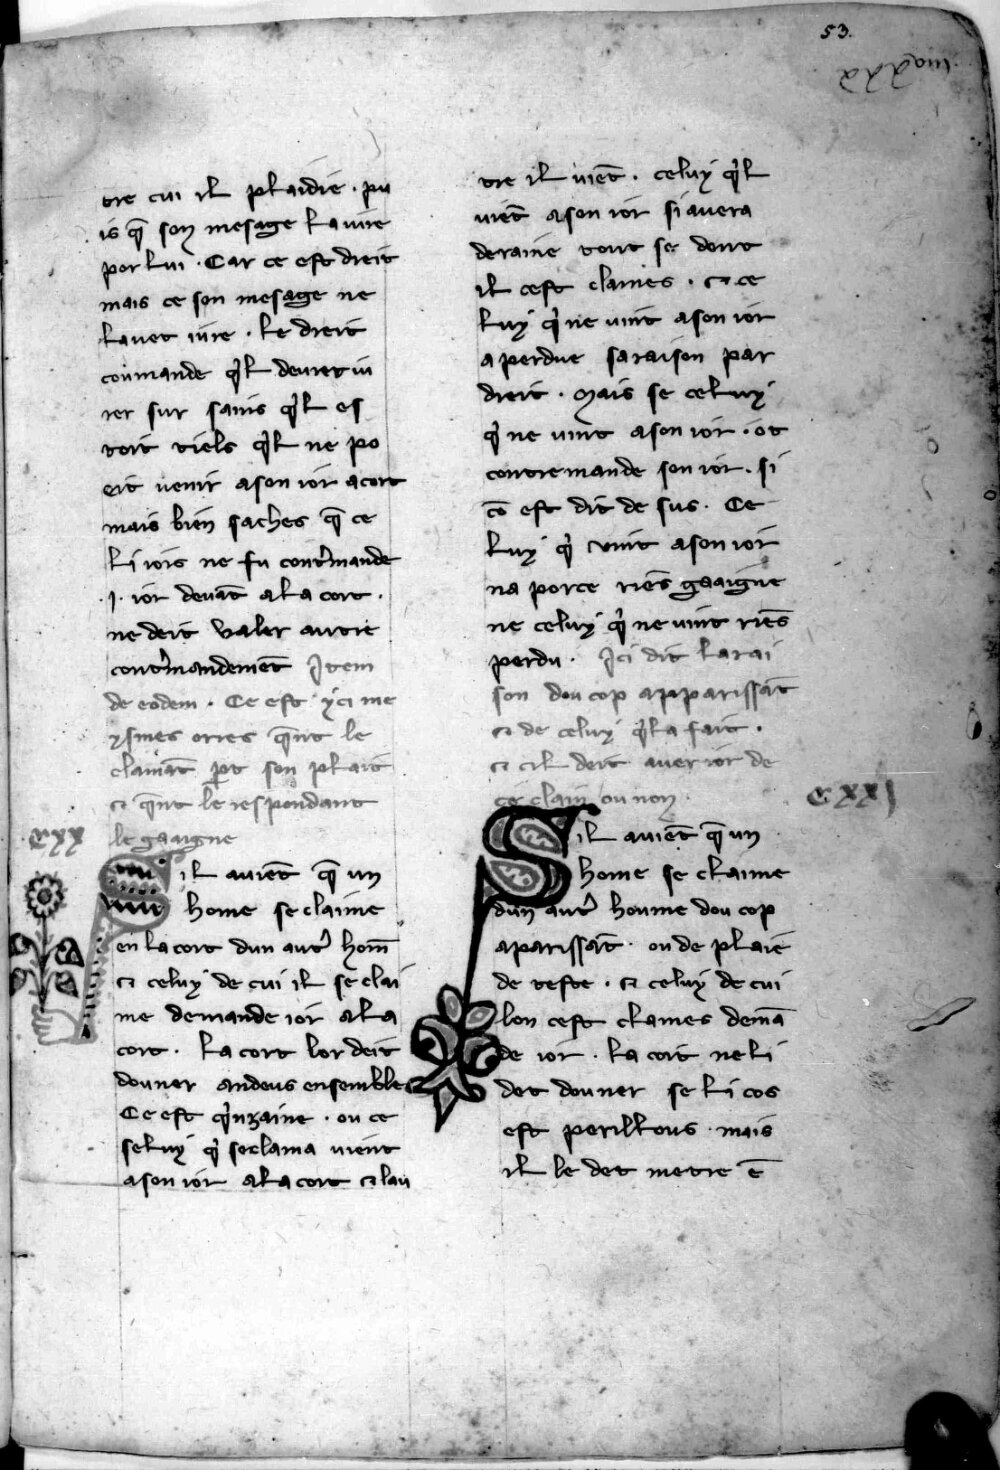 53.
tre cui il plaidie · pu
is q̄ son mesage la iure
por lui · Car ce est dreit
mais ce son mesage ne
lauet iure · le dreit
coumande q̍l deuret iu
rer sur sains q̍l es
toit tiels q̍l ne po
eit uenir a son ior a cort
mais bien saches q̄ ce
li iors ne fu cont̍mande
·j· ior deuāt a la cort ·
ne deit valer autre
cont̍mandemēt Item
de eodem · Ce est yci me
ysmes orres q̄nt le
clamāt ꝑt son plait
⁊ q̄nt le respondant
le gaaigne
CXX
Sil auient̄ q̄ un
home se claime
en la cort dun aut̍ hom̄
⁊ celuy de cui il se clai
me demande ior a la
cort · la cort lor deit
douner andeus ensemble
Ce est q̍nzaine · ou ce
seluy q̍ se clama uient
a son ior a la cort ⁊ lau
tre il uiēt · celuy q̍l
uiēt a son ior si auera
deraine tout se dont
il cest clames · ⁊ ce
luy q̍ ne uint a son ior
a perdue sa raison par
dreit · Mais se celuy
q̍ ne uint a son ior · ot
contremande son ior · si
cō est dit de sus · Ce
luy q̍ vint a son ior
na por ce riēs gaaigne
ne celuy q̍ ne uint riēs
perdu · Ici dit la rai
son dou cop apparissāt
⁊ de celuy q̍ la fait ·
⁊ cil deit auer ior de
ce clain ou non
CXXI
Sil auiēt q̄ un
home se claime
dun aut̍ houme dou cop
aparissāt · ou de plaie
de teste · ⁊ celuy de cui
lon cest clames demā
de ior · la cort ne li
det douner se li cos
est perillous · mais
il le det metre ē